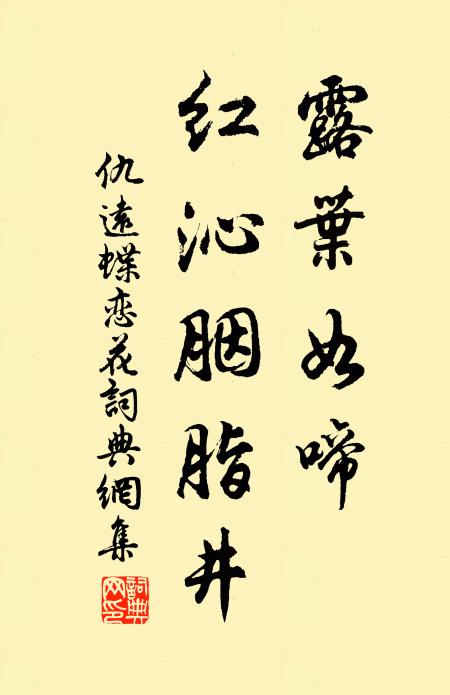 露葉如啼
红沁胭脂井
仇遠蝶恋花詞典網集
詞典网印